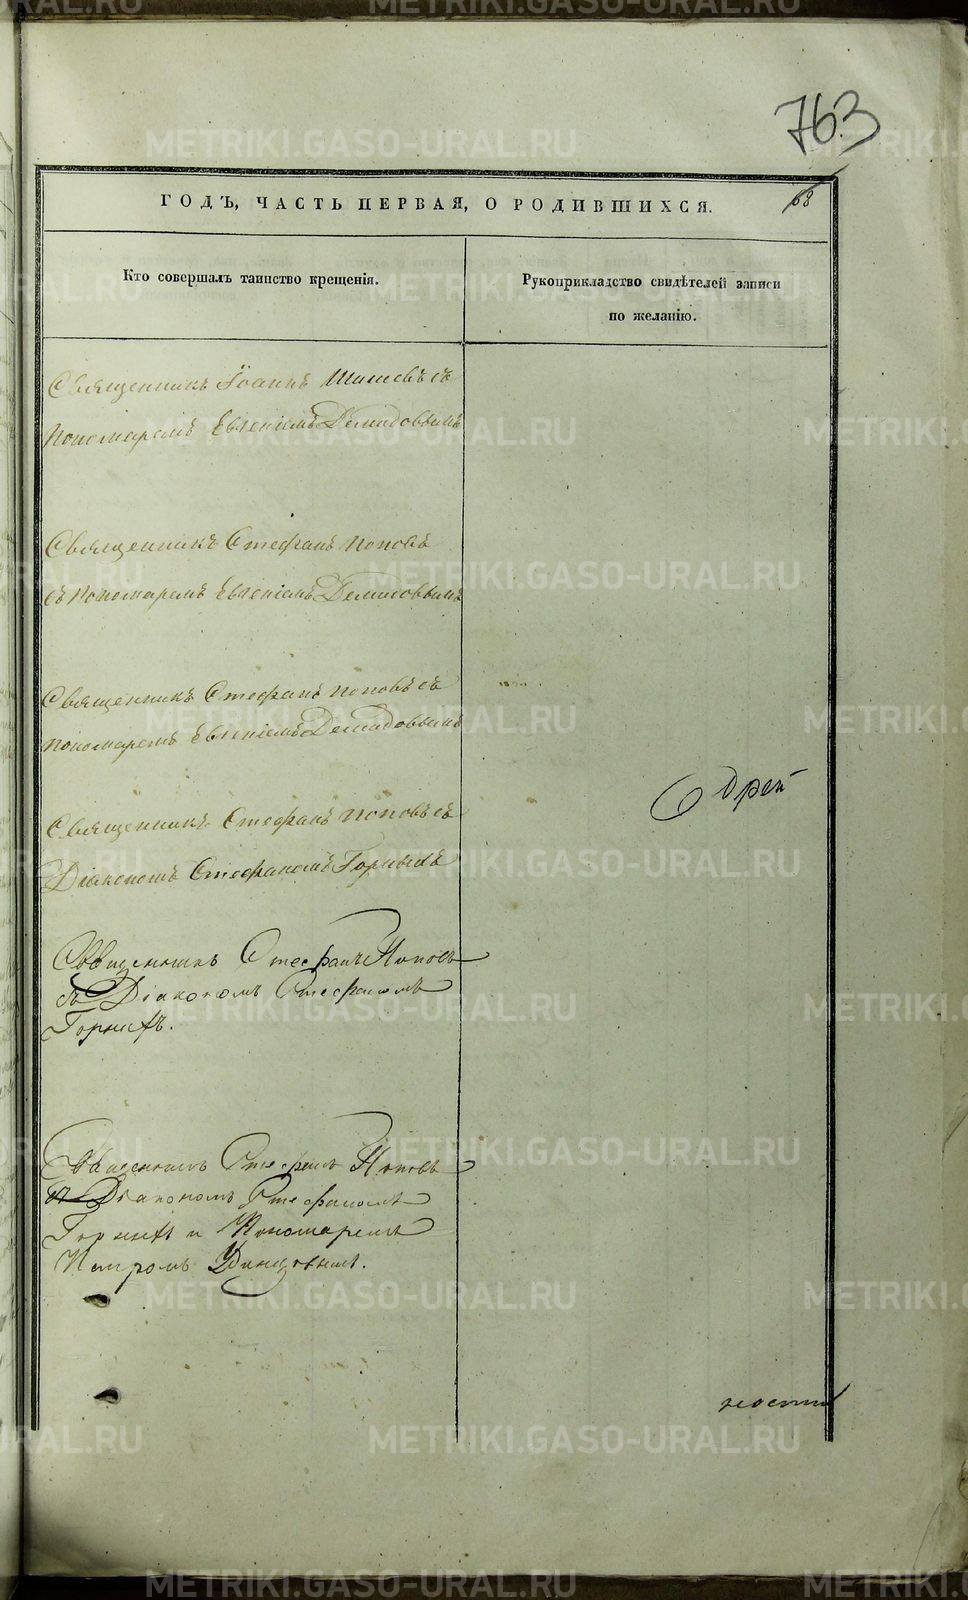 763
ГОДЪ, ЧАСТЬ ПЕРВАЯ, О РОДИВШИХСЯ.
68
Кто совершалъ таинство крещенія.
Рукоприкладство свидѣтелей записи
по желанію.
Священникъ Іоаннъ Шишевъ съ
Пономаремъ Евгеніемъ Демидовымъ
Священникъ Стефанъ Поповъ
съ Пономаремъ Евгеніемъ Демидовымъ
Священникъ Стефанъ Поповъ съ
Пономаремъ Евгеніемъ Демидовымъ
Священникъ Стефанъ Поповъ съ
Діакономъ Стефаномъ Горныхъ
Священникъ Стефанъ Поповъ
съ Діакономъ Стефаномъ
Горныхъ.
Священникъ Стефанъ Поповъ
съ Діакономъ Стефаномъ
Горныхъ и Пономаремъ
Петромъ Удинцовымъ.
METRIKI.GASO-URAL.RU